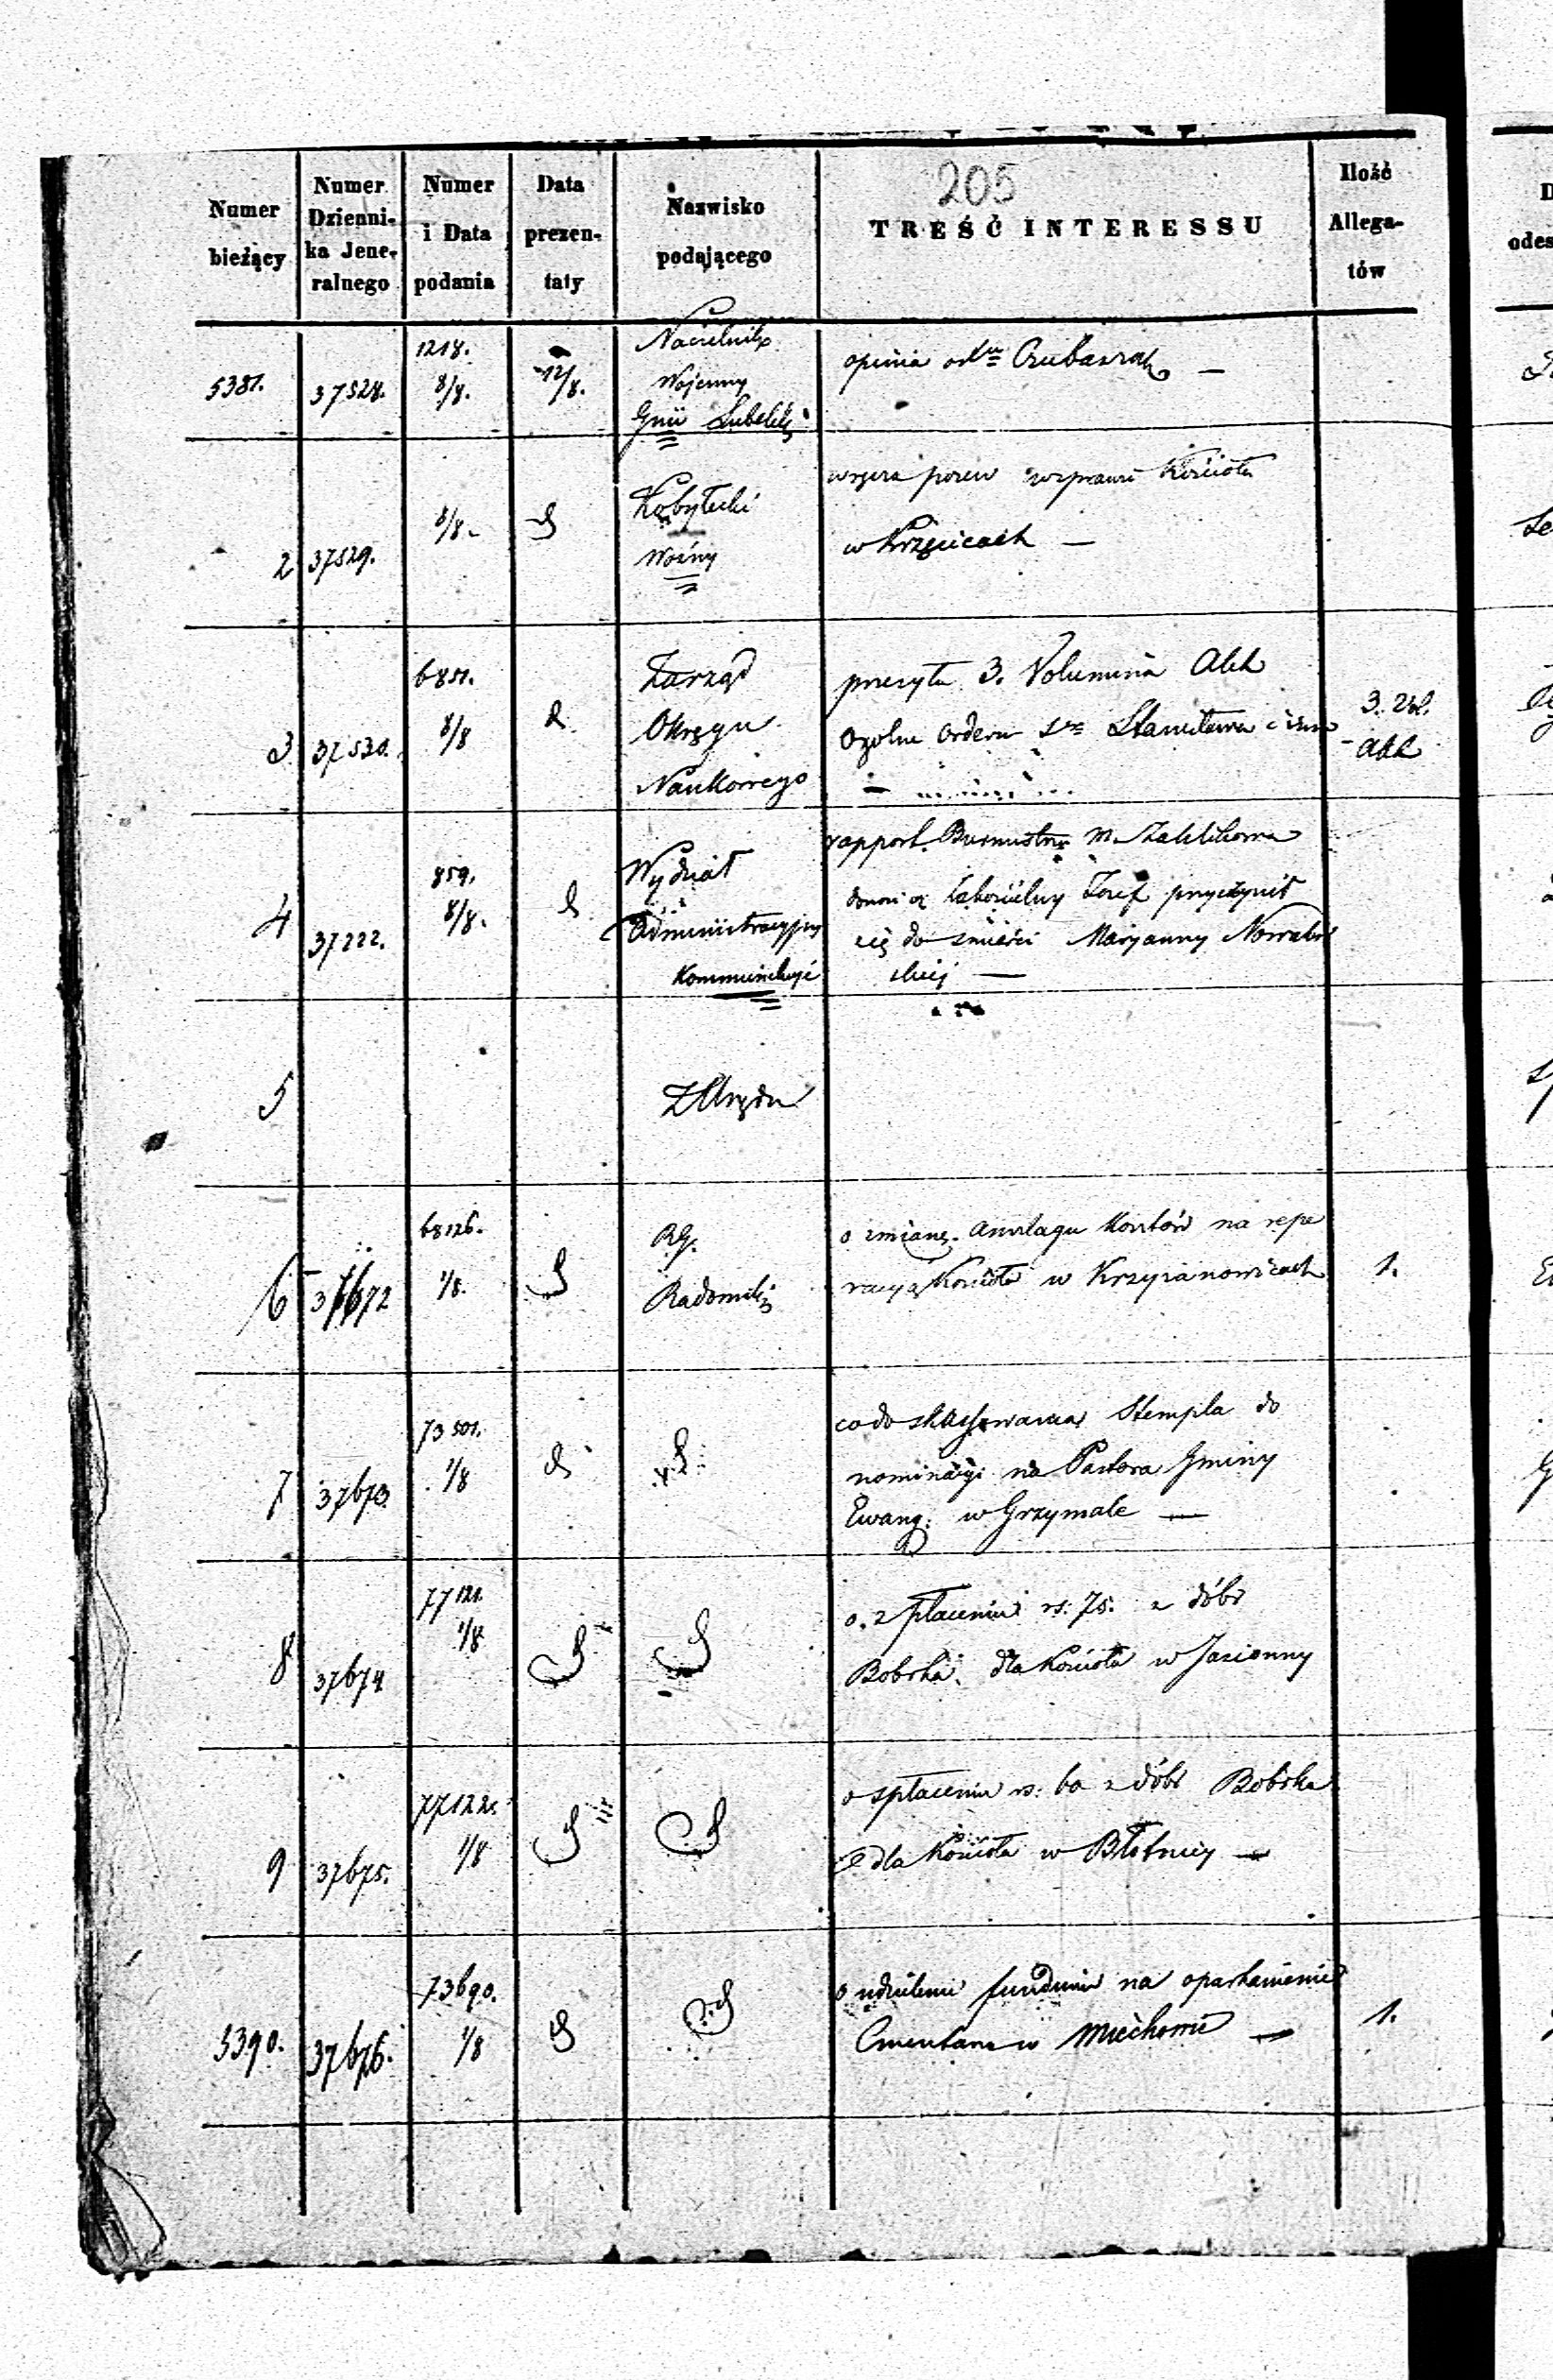 205
Numer bieżący
Numer Dzienni- ka Jene- ralnego
Numer i Data podania
Data prezen- taty
Nazwisko podającego
TREŚĆ INTERESSU
Ilość Allega- tów
5381. 37528. 1218. 8/8. 12/8.
Naczelnik
Wojenny
Gnii Lubelsk
opinia
2 37529. 8/8.
Kobyłecki
Woźny
w sprawie Kościoła
w
3 37530. 6851. 8/8
Zarząd
Okręgu
Naukowego
przesyła 3. Volumina Akt
orderu Stanisława
3. Vol.
Akt
4 37222. 859. 8/8.
Wydział
Administracyjny
Kommunikuje
rapport. Burmistrza m. Zaklikowa
Józef przyczynił
się do śmierci Maryanny Nowakow
skiej —
5
Z Urzędu
6 37672 68126. 1/8.
RG.
Radomski
o zmianę. Anszlagu Kosztów na repe
racyą Kościoła w Krzyżanowicach
1.
7 37673. 73501. 1/8
co do skassowania Stempla do
nominacyi na Pastora Gminy
Ewang. w Grzymale —
8 37674 77121. 1/8
rs. 75. z dóbr
Bobrka. dla Kościoła w Jasionny
9 37675. 77122. 1/8
o spłacenie rs. 60 z dóbr Bobrka
dla Kościoła w Błotnicy —
5390. 37676. 73690. 1/8
o udzielenie funduszu na oparkanienie
Cmentarza w Miechowie —
1.